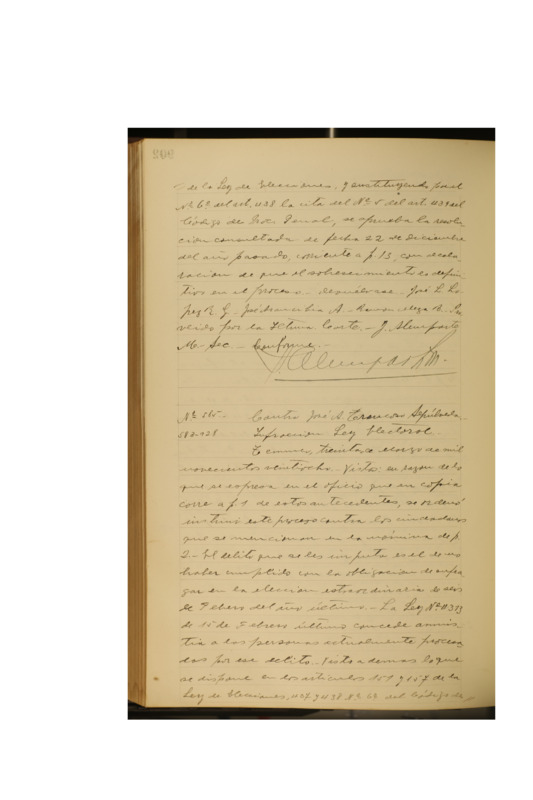 de la Ley de Elecciones, y sustituyendo por el
Nº 6º del art. 438 la cita del Nº 5 del art. 439 del
Código de Proc. Penal, se aprueba la resolu
ción consultada de fecha 22 de Diciembre
del año pasado, corriente a f 13, con decla
ración de que el sobreseimiento es defini-
tivo en el proceso.- Devuélvase.- José L. Ló
pez
veido por la Iltma. Corte.- J. Alempart
M- Sec.- Conforme.-
Nº 585- Contra José A. Troncoso Sepúlveda
Infracción Ley Electoral.
Temuco, treinta de marzo de mil
novecientos Vistos: en razón de lo
que se expresa en el oficio que en copia
corre a f 1 de estos antecedentes, se ordenó
instruir este proceso contra los ciudadanos
que se mencionan en la nómina de f
2.- El delito que se les imputa es el de no
haber cumplido con la obligación de sufra
gar en la elección extraordinaria de
de Febrero del año último.- La Ley Nº
de 15 de Febrero último concede amnis-
tía a las personas actualmente procesa
das por ese delito.- Visto además lo que
se dispone en los artículos 151 y 157 de la
Ley de Elecciones, 437 y 438 Nº 6º del Código de